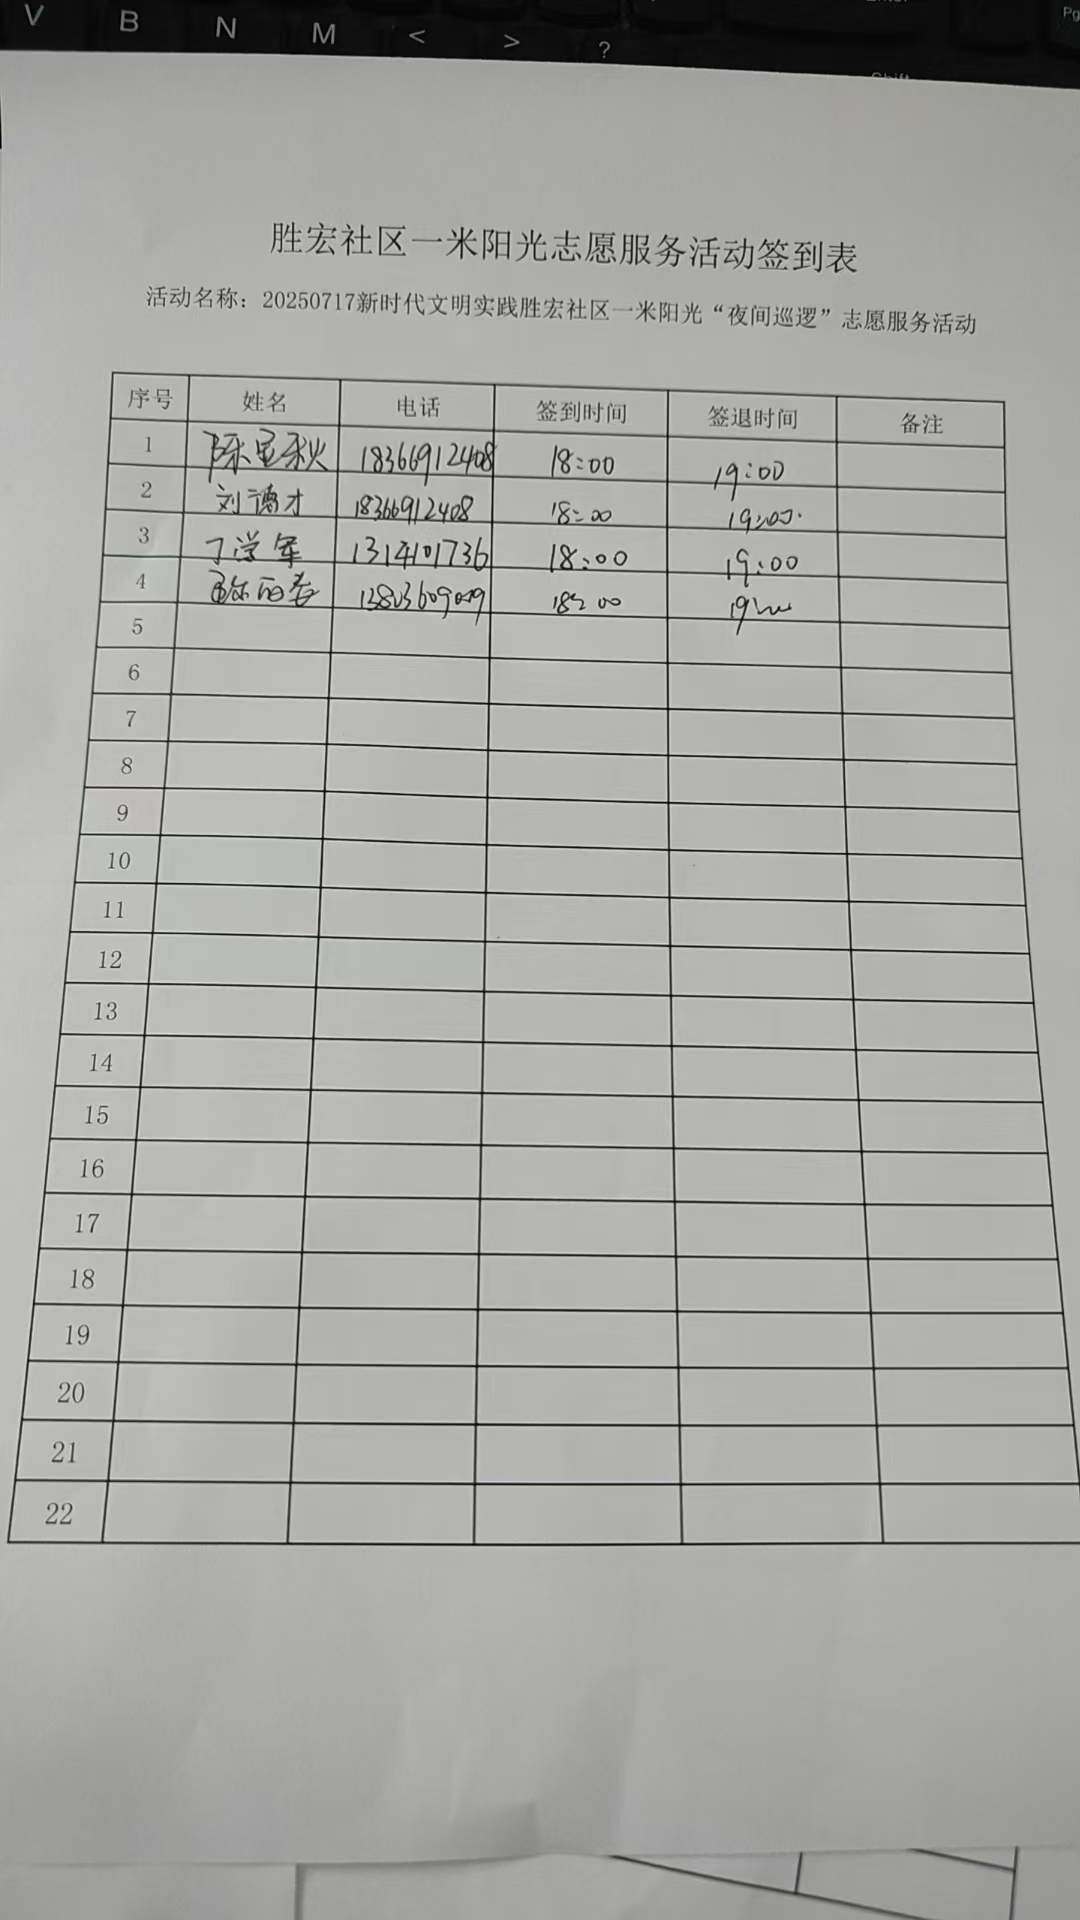 V B N M < > ?
胜宏社区一米阳光志愿服务活动签到表
活动名称：20250717新时代文明实践胜宏社区一米阳光“夜间巡逻”志愿服务活动
序号 姓名 电话 签到时间 签退时间 备注
1 18366912408 18:00 19:00
2 刘德才 18366912408 18:00 19:00
3 丁学军 1314101736 18:00 19:00
4 18:00
5
6
7
8
9
10
11
12
13
14
15
16
17
18
19
20
21
22